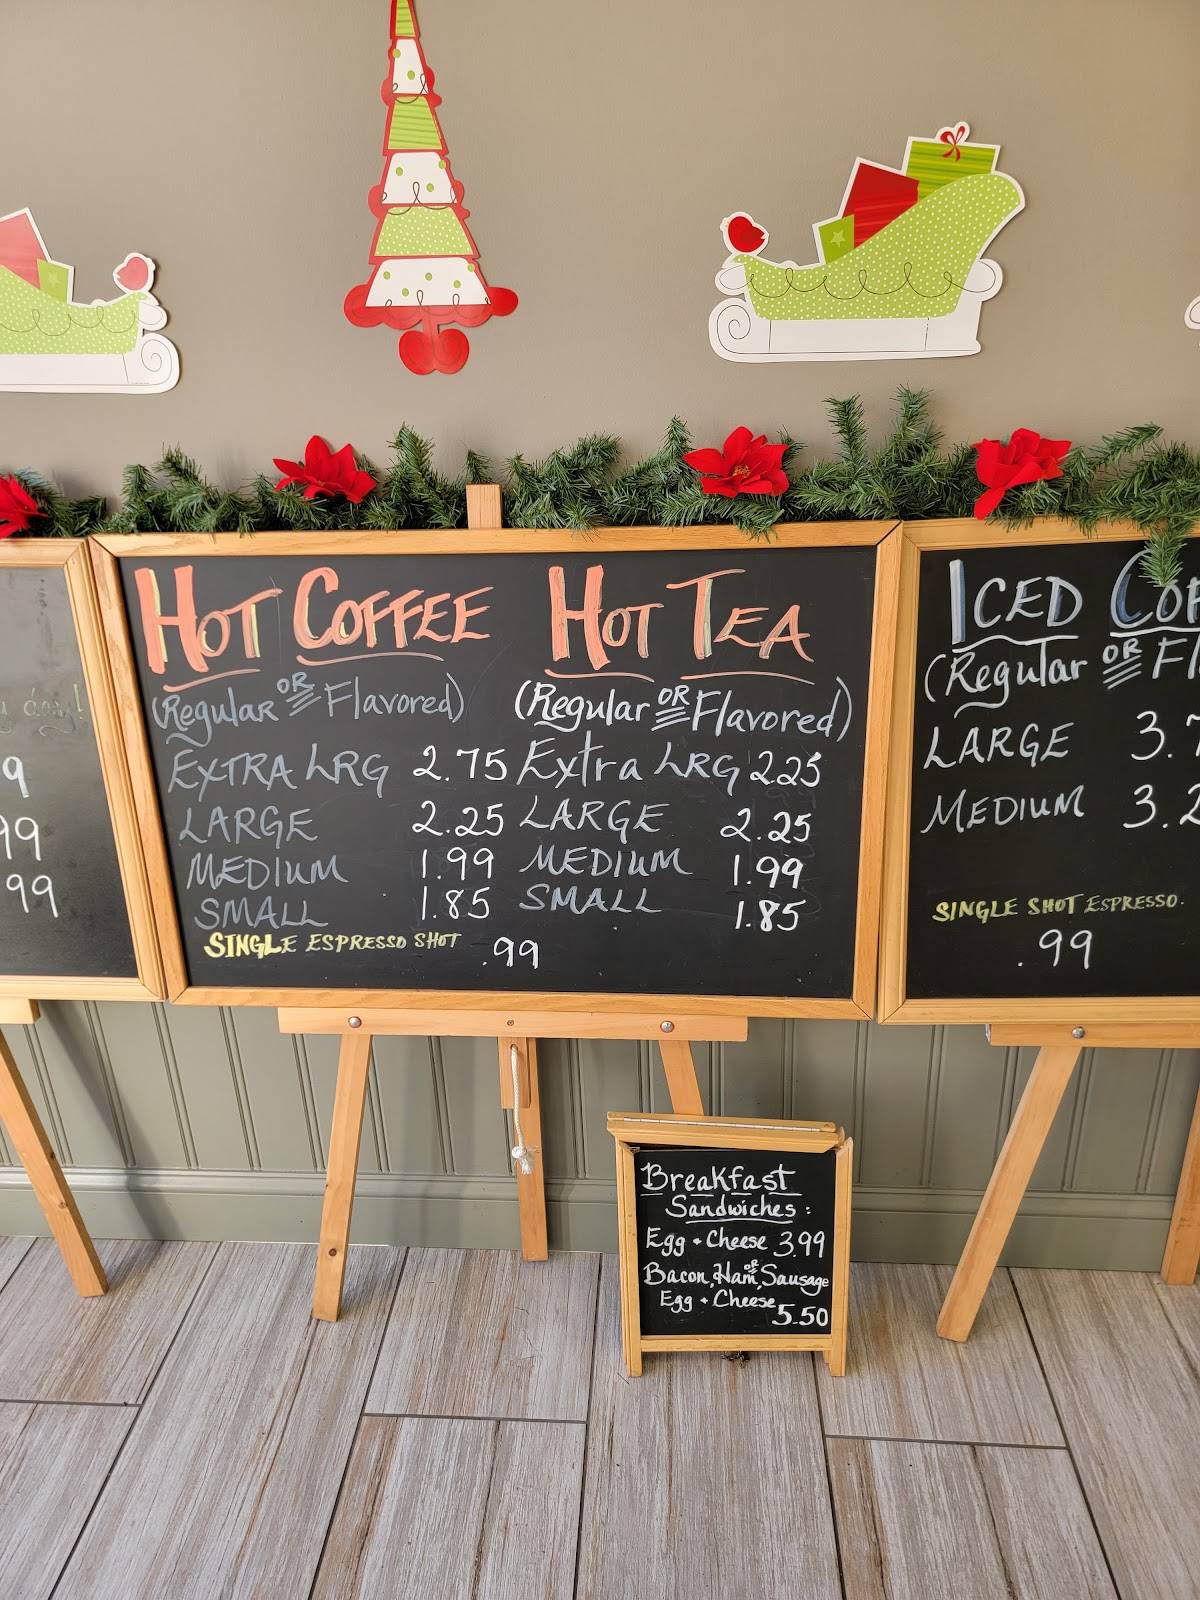 y day!
9
99
99
HOT COFFEE
(Regular OR Flavored)
EXTRA LRG 2.75
LARGE 2.25
MEDIUM 1.99
SMALL 1.85
SINGLE ESPRESSO SHOT .99
HOT TEA
(Regular OR Flavored)
Extra LRG 2.25
LARGE 2.25
MEDIUM 1.99
SMALL 1.85
ICED
(Regular OR
LARGE 3.
MEDIUM 3.
SINGLE SHOT ESPRESSO.
.99
Breakfast
Sandwiches:
Egg + Cheese 3.99
Bacon, Ham, OR Sausage
Egg + Cheese 5.50